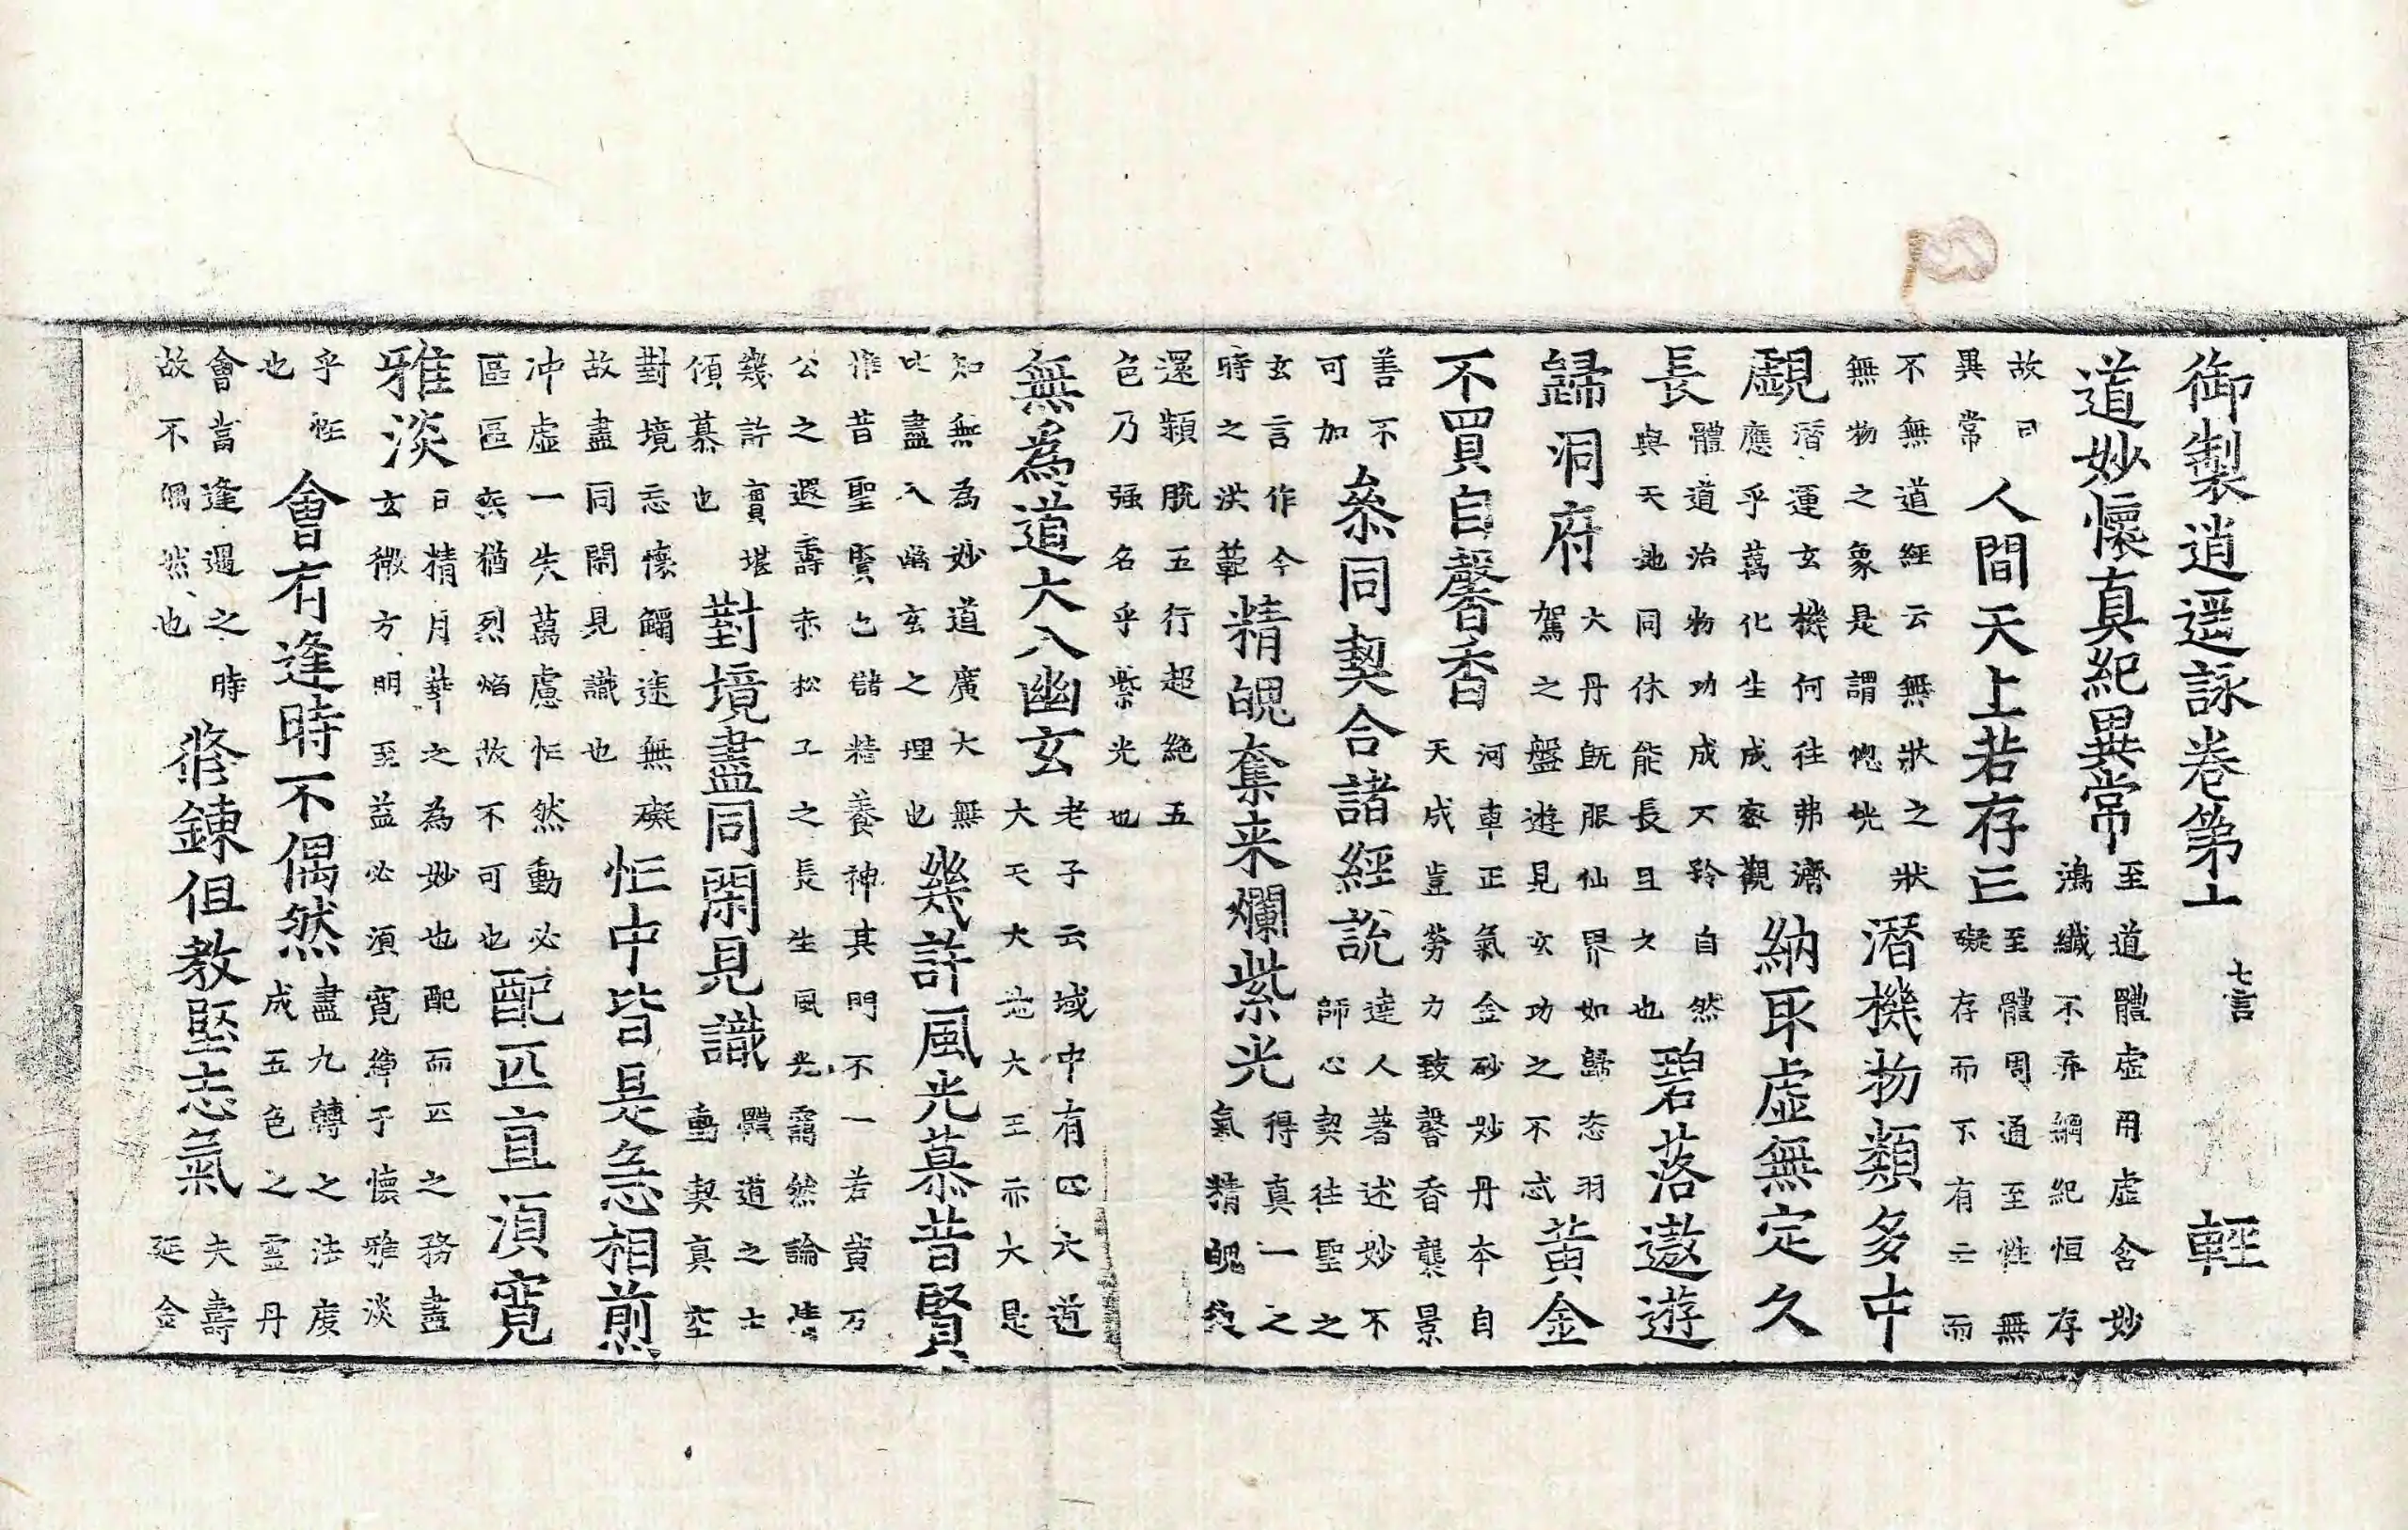 御製逍遥詠卷第十一 七言 輕
道妙懷真紀異常 至道體虛用虛含妙
鴻纖不弃綱紀恒存
故曰
異常
人間天上若存亡 至體周通至性無
礙存而不有亡而
不無道經云無狀之狀
無物之象是謂惚恍
潛機物類多中
覷 潛運玄機何往弗濟
應乎萬化生成密觀
納取虛無定久
長 體道治物功成不矜自然
與天地同休能長且久也
碧落遨遊
歸洞府 大丹既服仙界如歸恣羽
駕之盤遊見玄功之不忒
黃金
不買自馨香 河車正氣金砂妙丹本自
天成豈勞力致馨香襲景
善不
可加
叅同契合諸經說 達人著述妙不
師心契往聖之
玄言作今
時之洪範
精魄奪来爛紫光 得真一之
氣精魄
還脫五行超絕五
色乃强名乎紫光也
無為道大入幽玄 老子云域中有四大道
大天大地大王亦大是
知無為妙道廣大無
比盡入幽玄之理也
幾許風光慕昔賢
惟昔聖賢儲精養神其門不一若黃石
公之遐壽赤松子之長生風光靄然論情
幾許實堪
傾慕也
對境盡同閑見識 體道之士
動契真空
對境忘懷觸途無礙
故盡同閑見識也
忙中皆是急相煎
冲虛一失萬慮忙然動必
區區猶烈焰故不可也
配匹直須寬
雅淡 日精月華之為妙也配而匹之務盡
玄微方明至益必須寬綽于懷雅淡
乎性
也
會有逢時不偶然 盡九轉之法度
成五色之靈丹
會當逢遇之時
故不偶然也
修鍊但教堅志氣 夫壽
延金